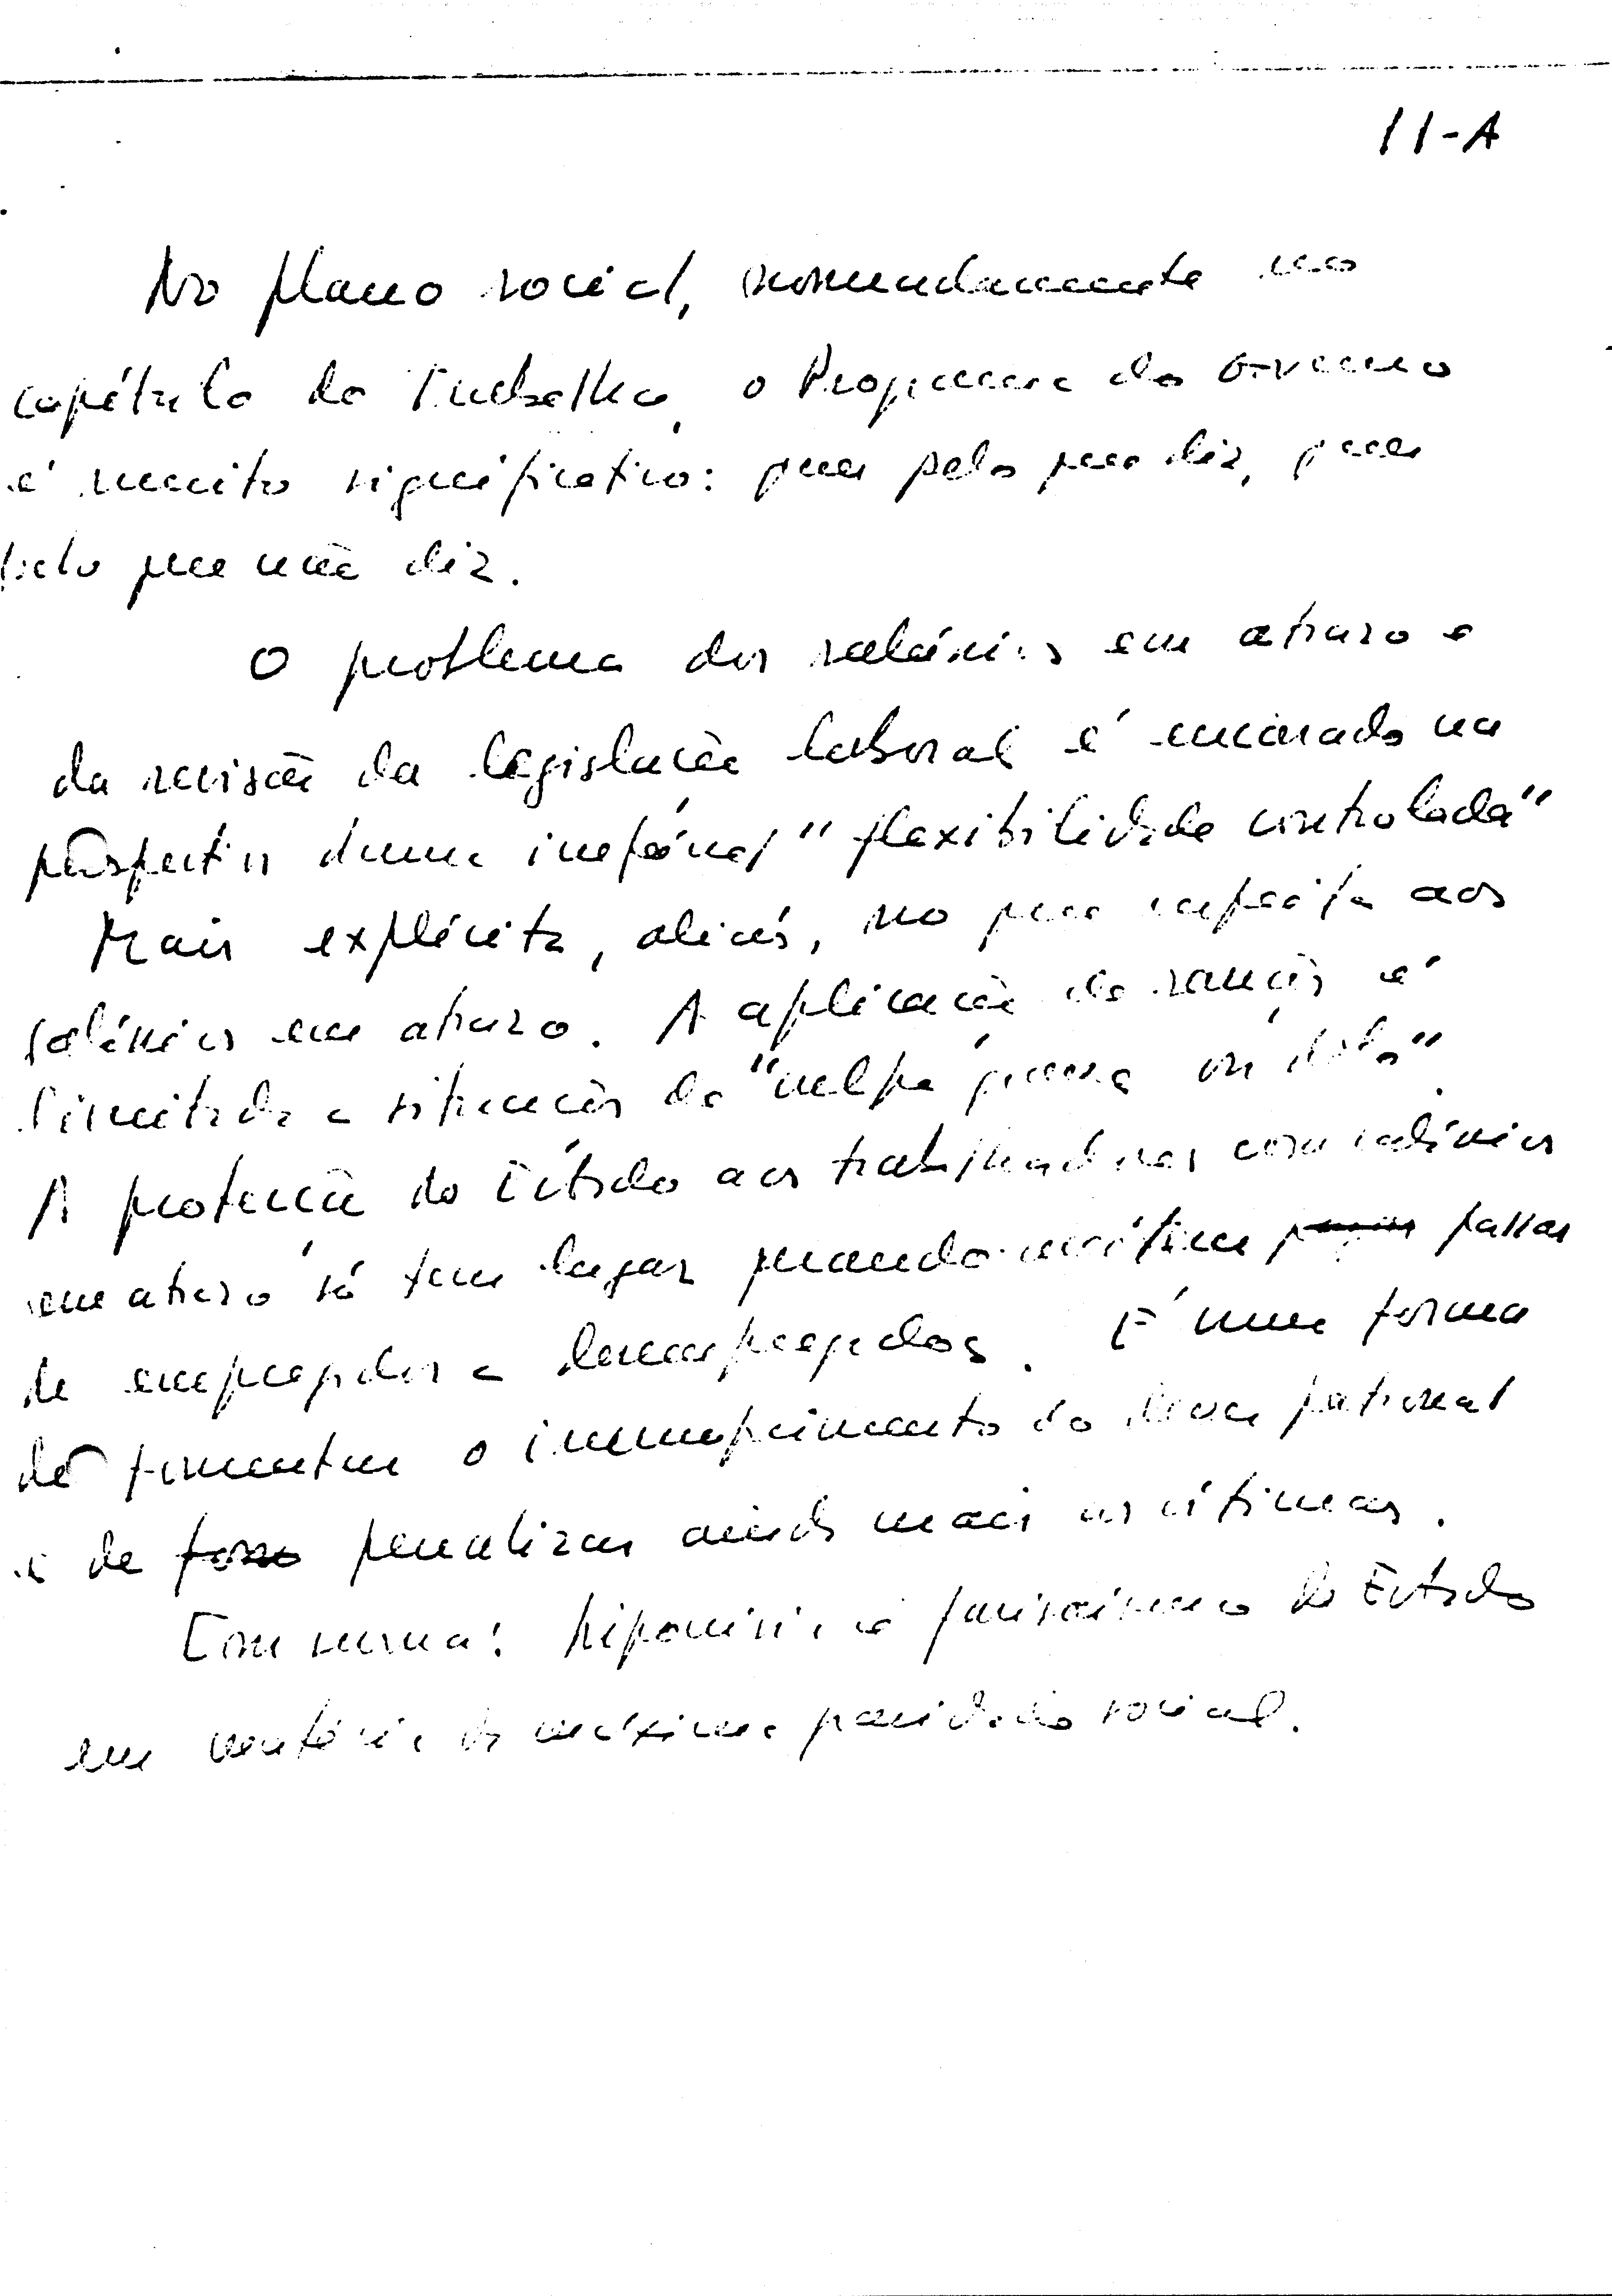 11-A
No plano social, nomeadamente no
capítulo do Trabalho, o Programa do Governo
é muito significativo: quer pelo que diz, quer
pelo que não diz.
O problema dos salários em atraso e
da revisão da legislação laboral é encarado na
perspectiva duma inefável "flexibilidade controlada"
Mais explícita, aliás, no que respeita aos
salários em atraso. A aplicação de sanções é
limitada a situações de "culpa grave ou dolo".
A protecção do Estado aos trabalhadores com salários
em atraso só tem lugar quando estes passar
de empregados a desempregados. É uma forma
de fomentar o incumprimento do dever patronal
e de penalizar ainda mais as vítimas.
Em suma: hipocrisia e farisaismo do Estado
em matéria de máxima gravidade social.